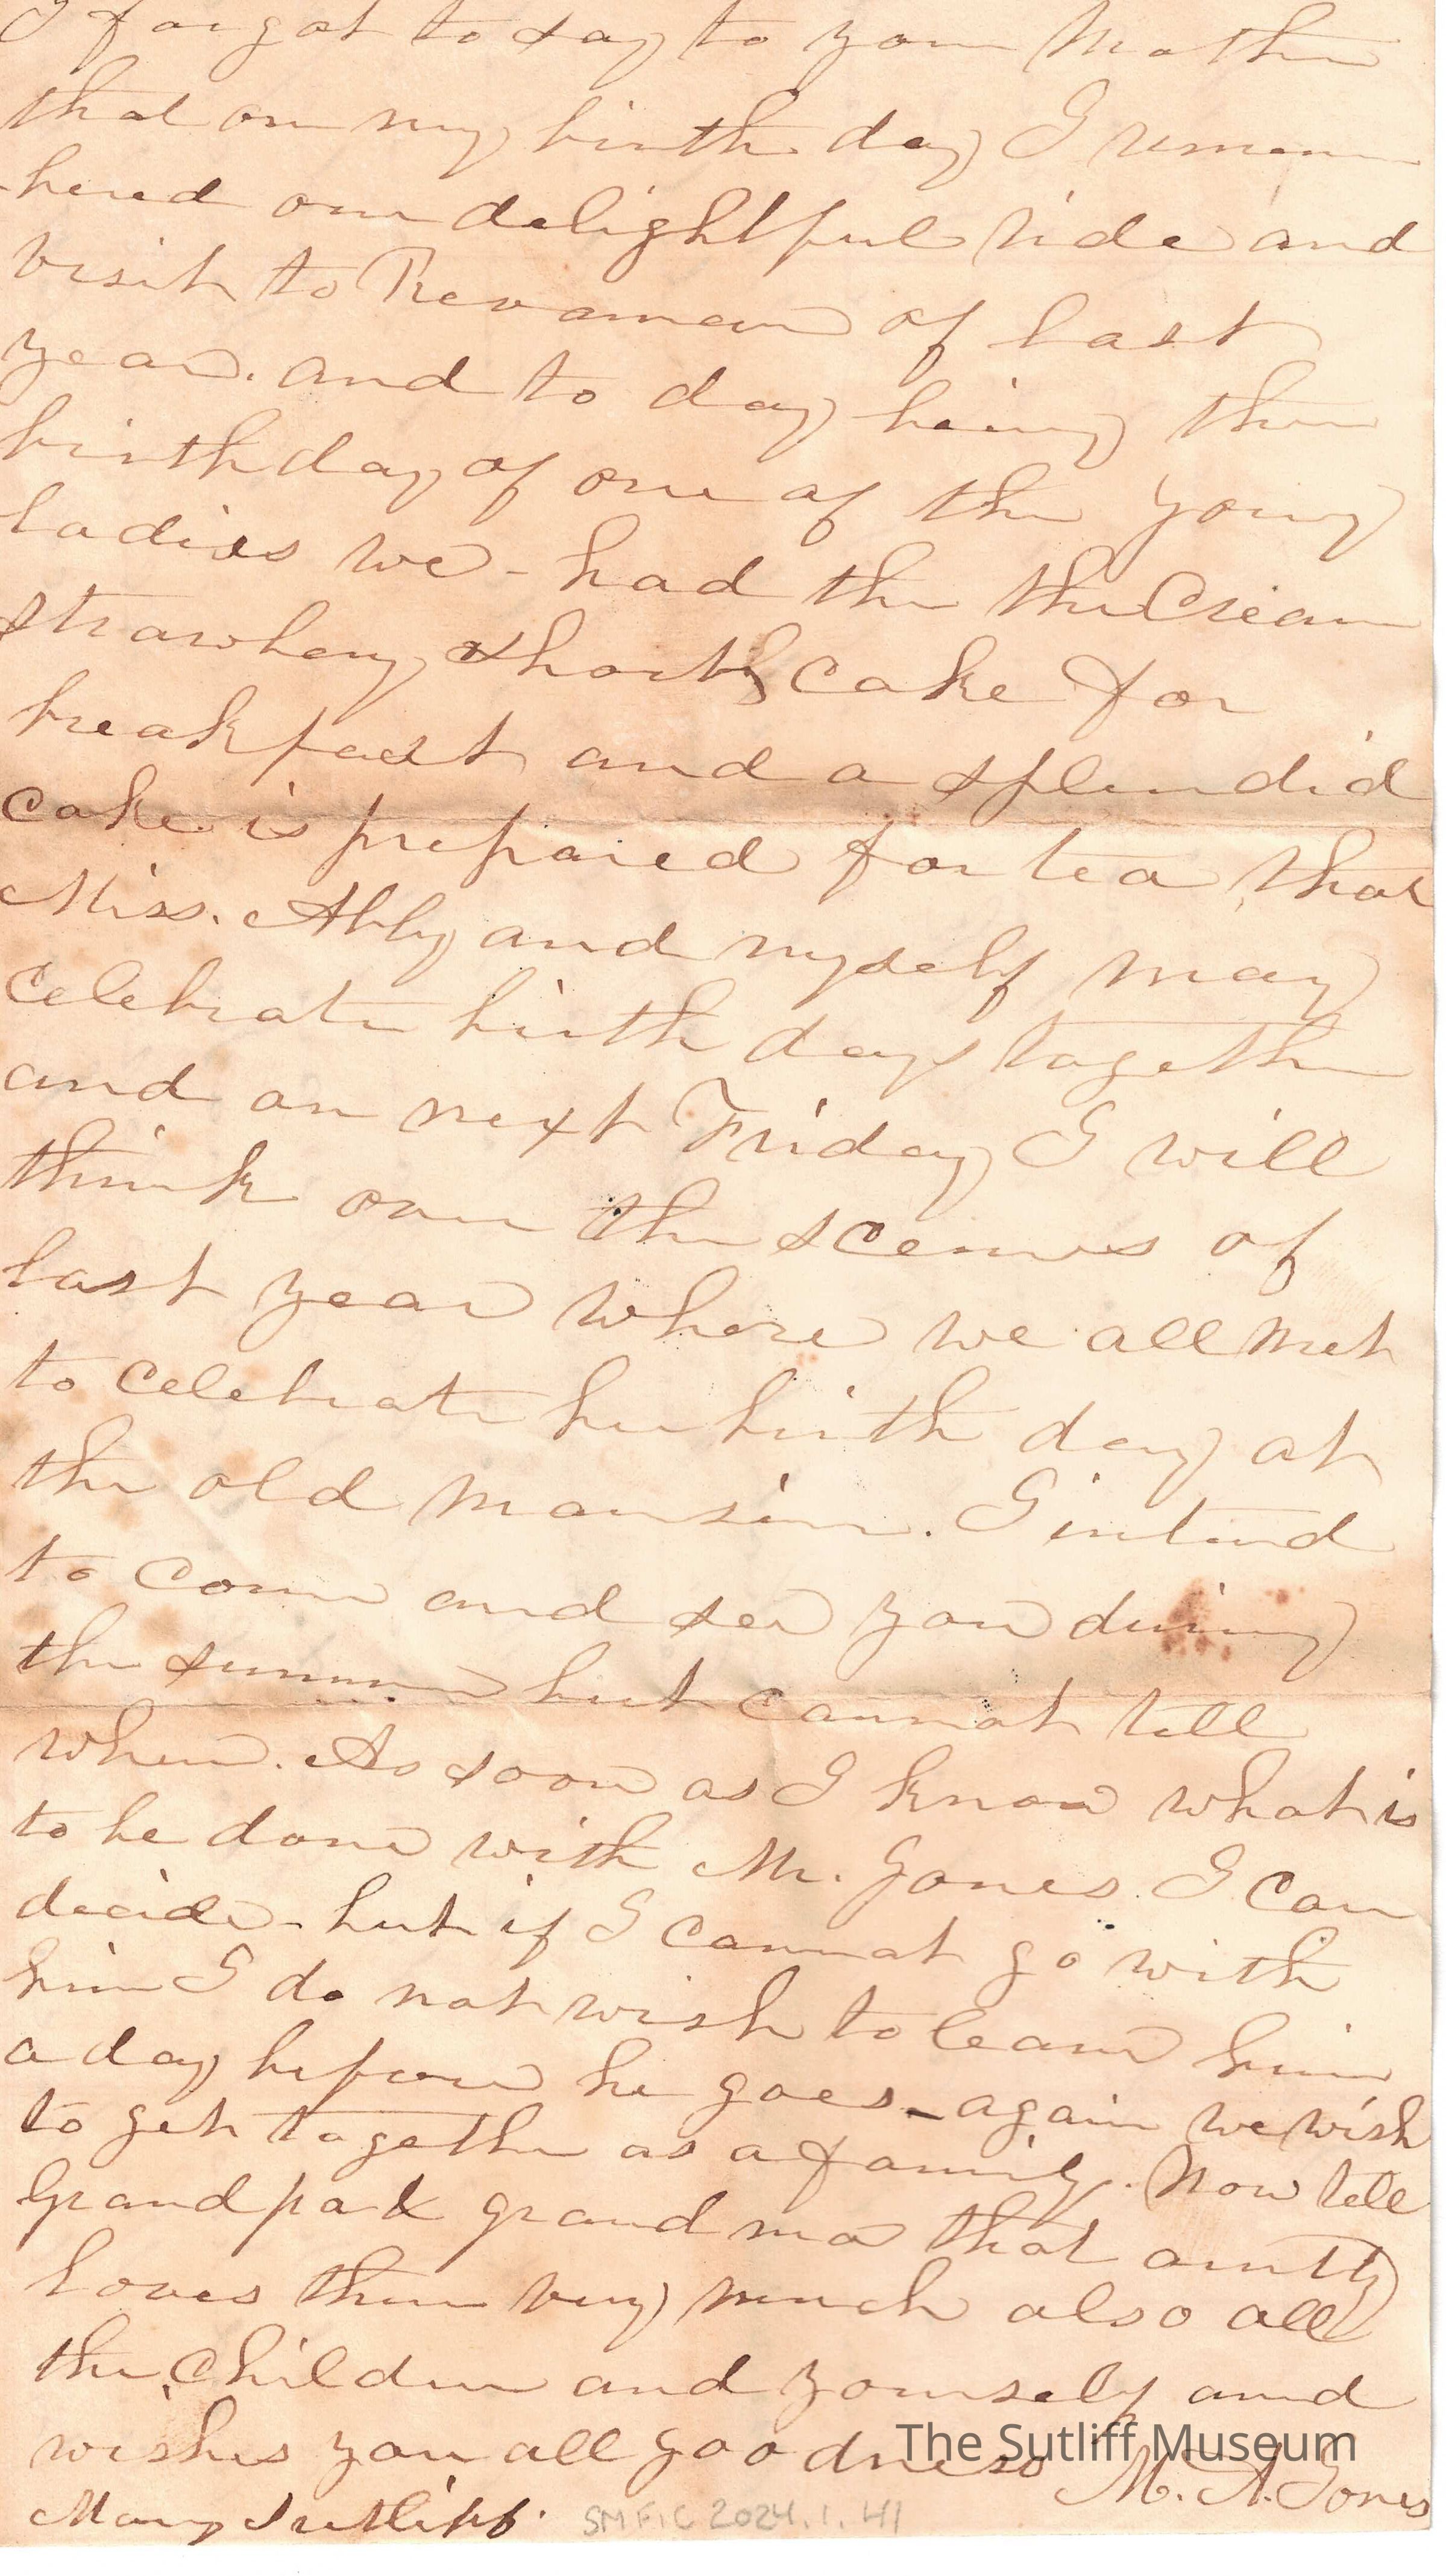 I forgot to day to your Mother
that on my birth day I remem
-bered our delightful ride and
visit to Ravanna of last
year. and to day being the
birthday of one of the young
ladies we - had the the Cream
strawbery short cake for
breakfast and a splendid
cake is prepared for tea, that
Miss. Abby and myself may
celebrate birth days together
and on next Friday I will
think over the scenes of
last year where we all met
to celebrate her birth day at
the old mansion. I intend
to come and see you during
the summer but cannot tell
when. As soon as I know what is
to be done with Mr. Jones. I can
decide - but if I cannot go with
him I do not wish to leave him
a day before he goes - again we wish
to get together as a family. Now tell
Grandpa & grand ma that aunty
loves them very much also all
the children and yourself and
wishes you all goodness
M. A. Jones
Mary Sutliff.
SMF.C 2024.1.41
The Sutliff Museum